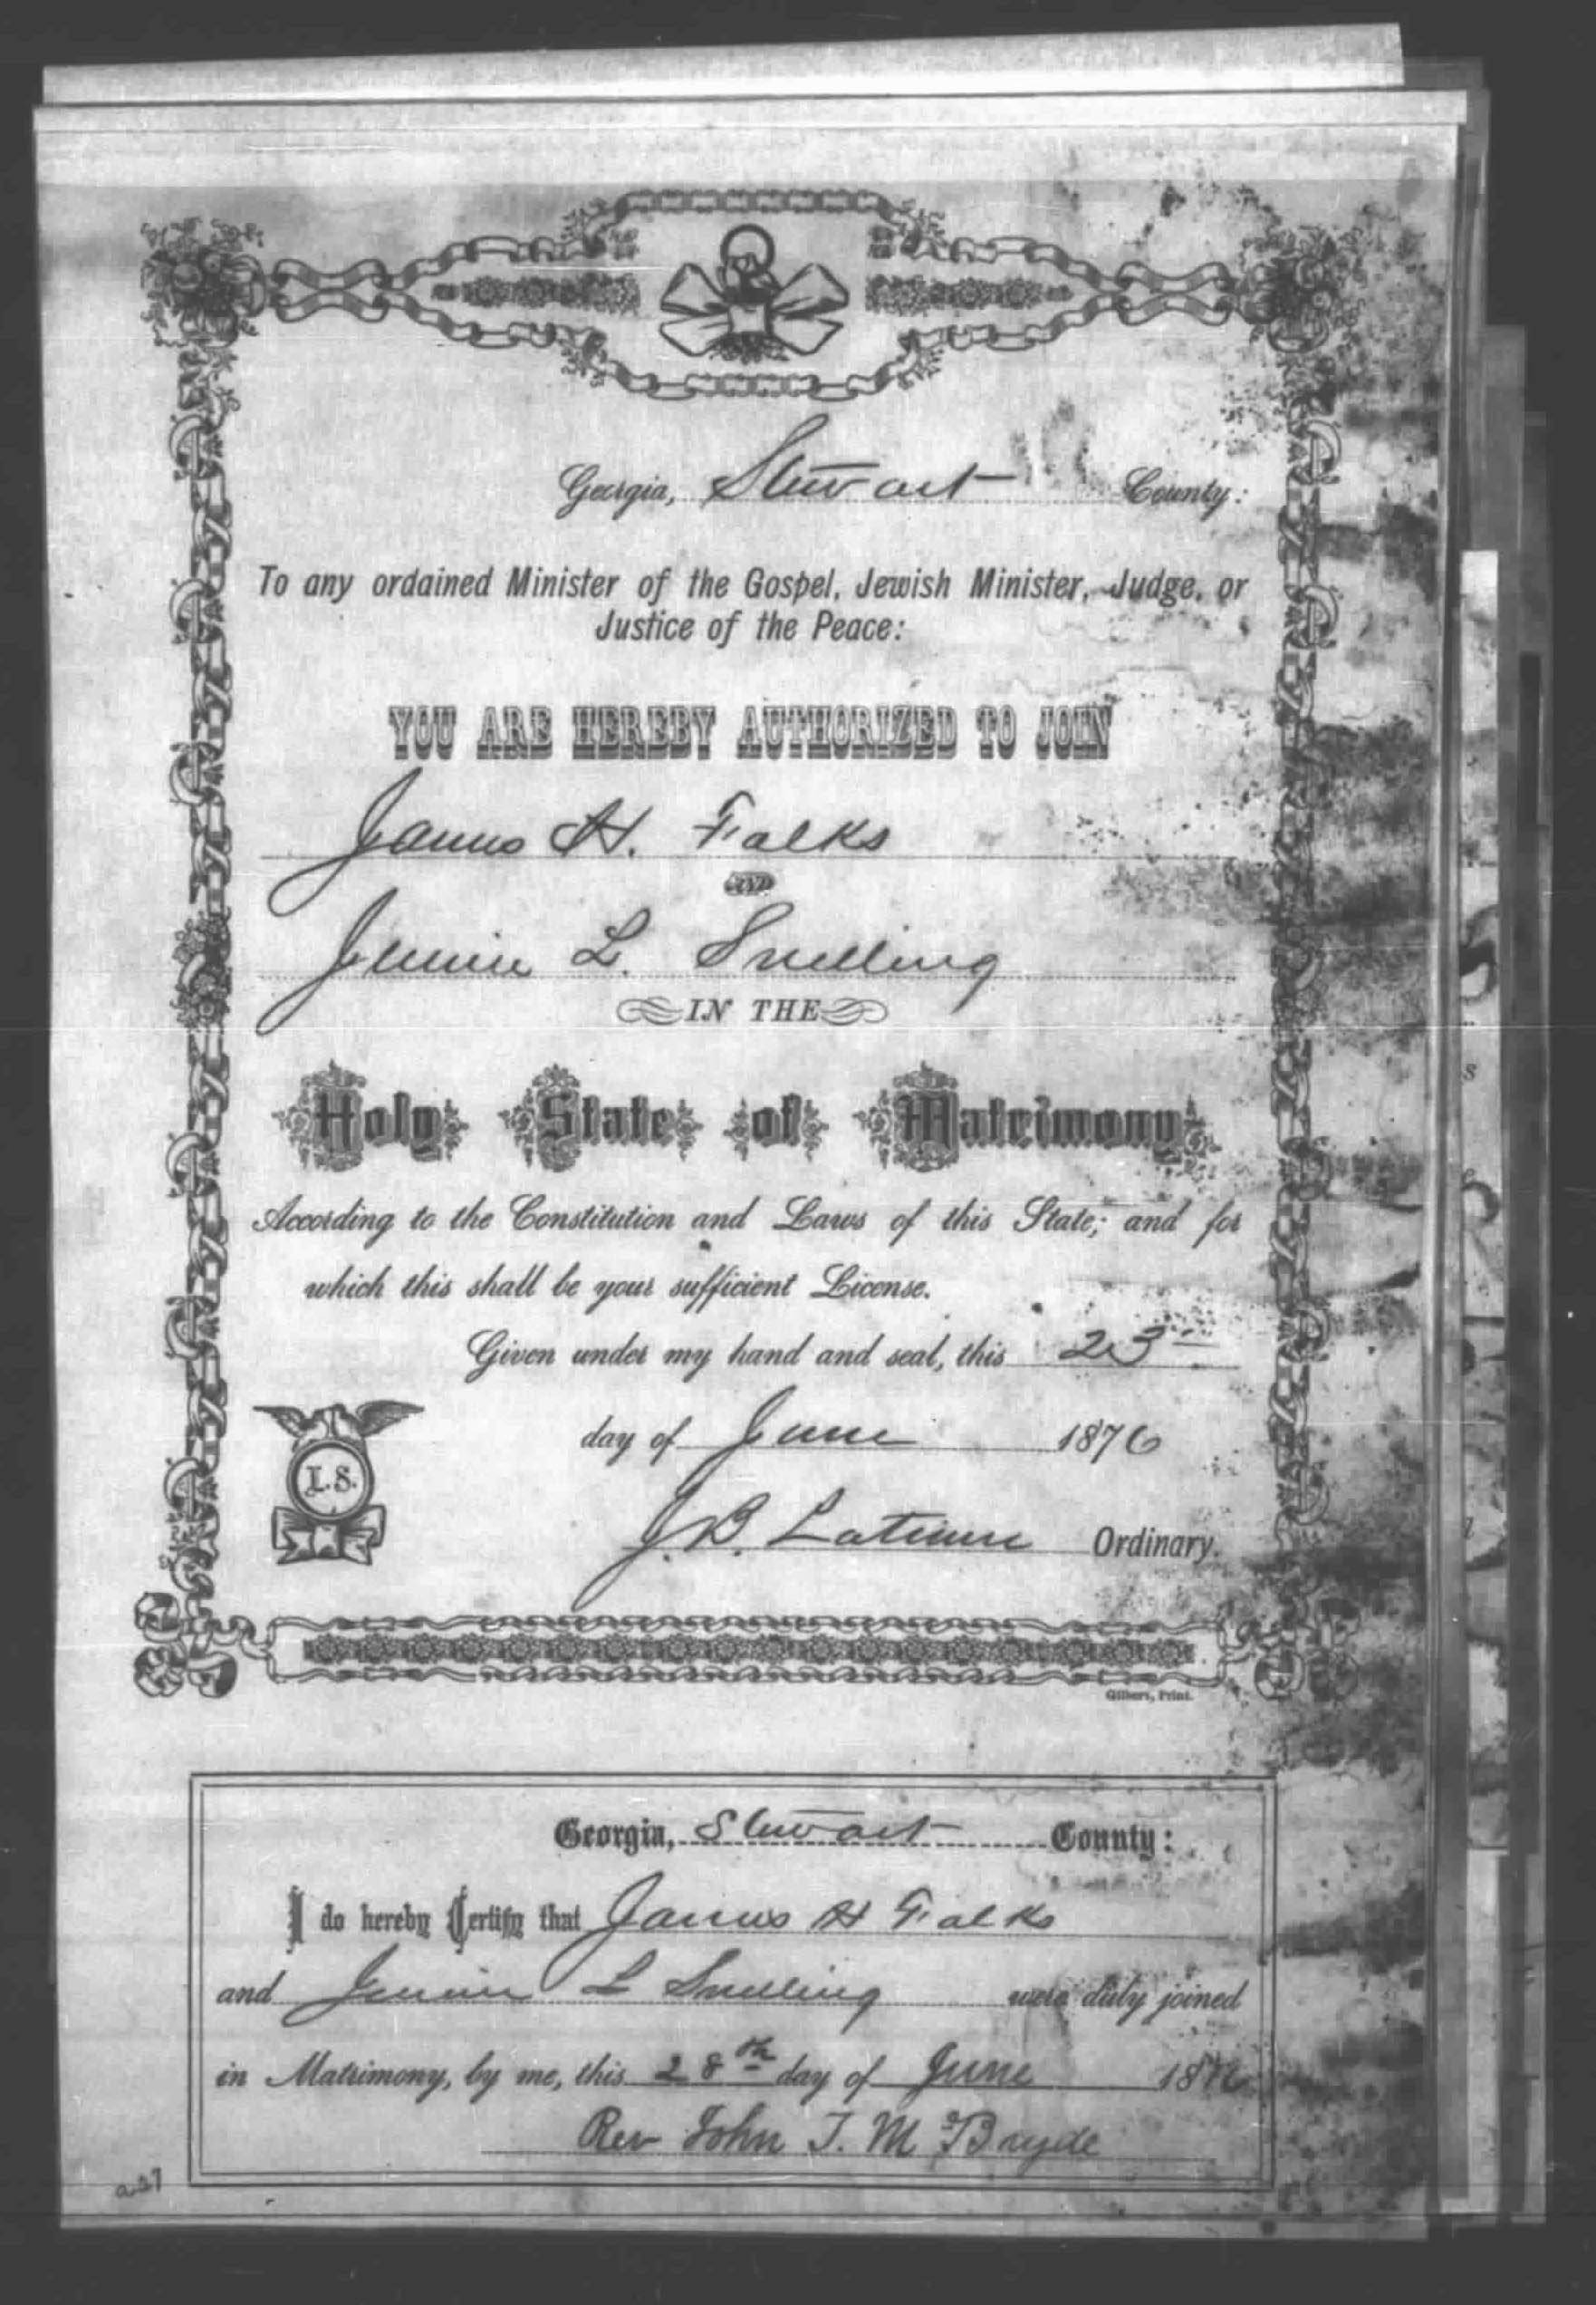 Georgia, Stewart County:
To any ordained Minister of the Gospel, Jewish Minister, Judge, or
Justice of the Peace:
YOU ARE HEREBY AUTHORIZED TO JOIN
James H. Falks
AND
Jennie L. Snelling
IN THE
Holy State of Matrimony
According to the Constitution and Laws of this State; and for
which this shall be your sufficient License.
Given under my hand and seal, this 23
day of June 1876
L.S.
J.B. Latimer Ordinary.
Gilbert, Print.
Georgia, Stewart County:
I do hereby Certify that James H Falks
and Jennie L Snelling were duly joined
in Matrimony, by me, this 28th day of June 1876
Rev John T. M